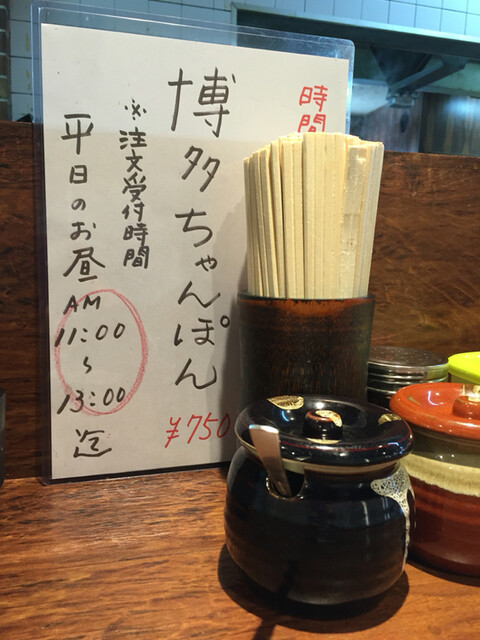 時間
博多ちゃんぽん
¥750
※注文受付時間
平日のお昼
AM
11:00
~
13:00
迄